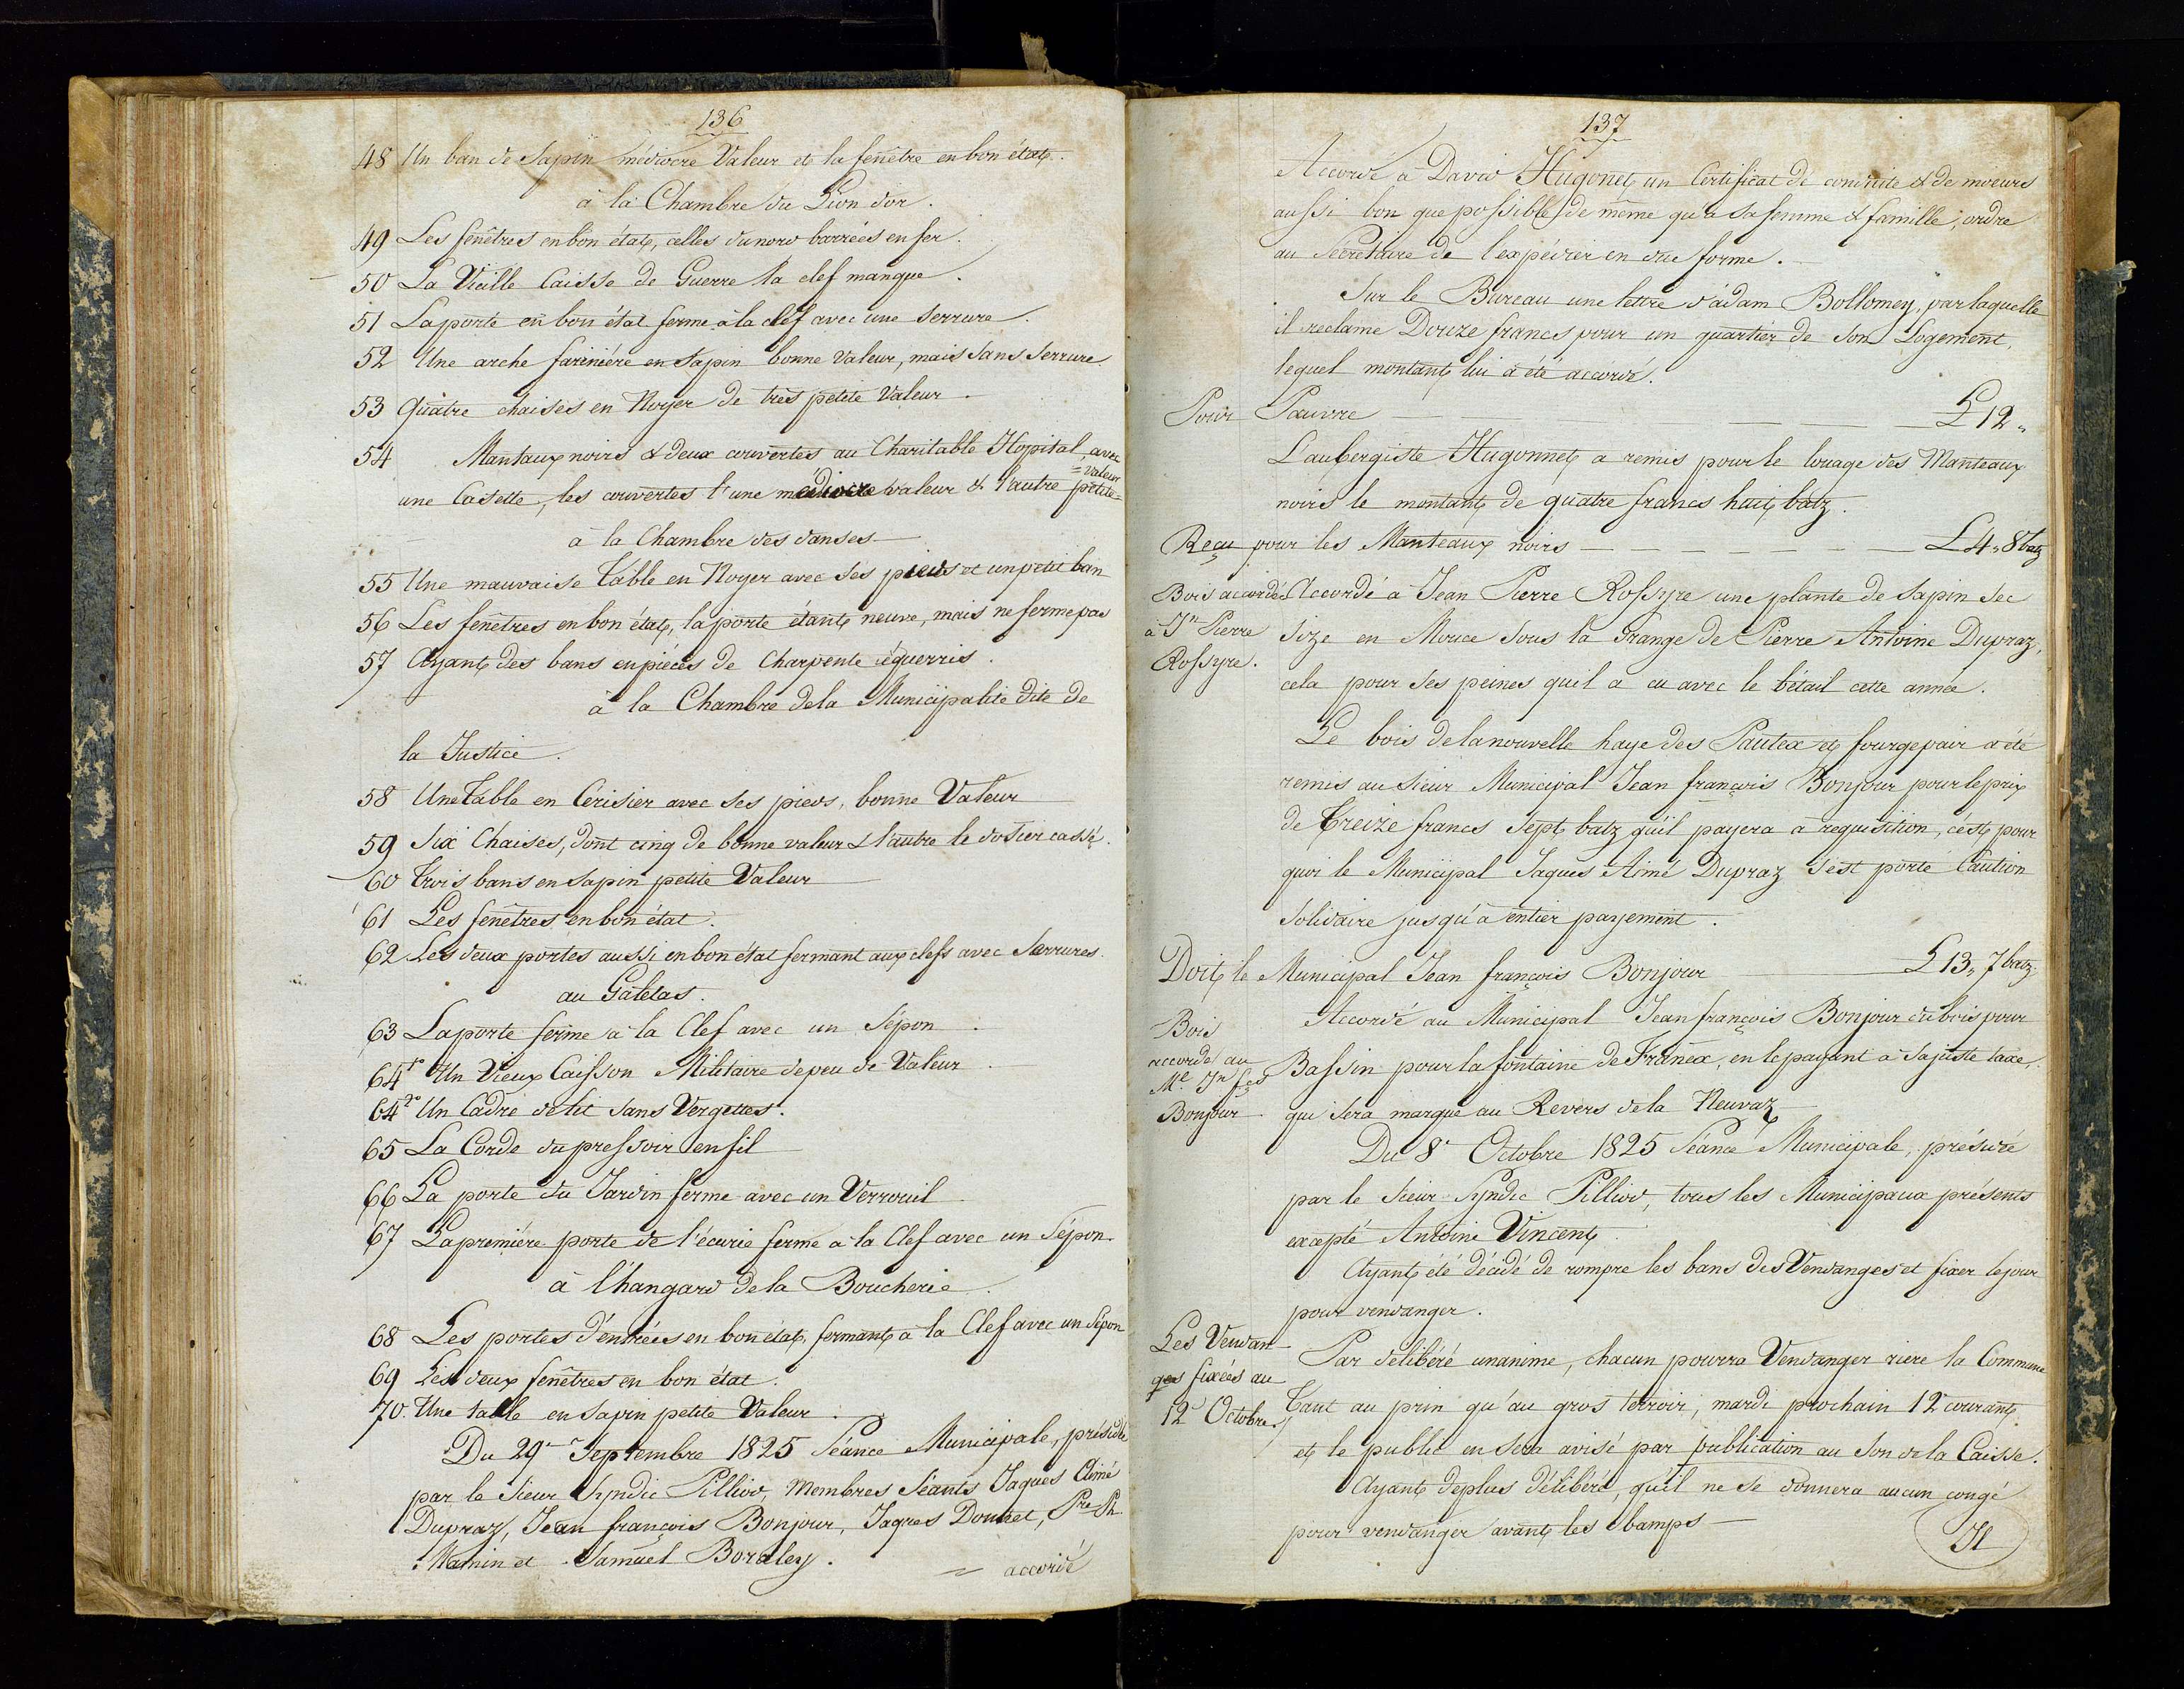 136
48 Un ban de Sapin médiocre Valeur et la fenêtre en bon état.
à la Chambre du Lion d'or.
49 Les fenêtres en bon état, celles du nord barrées en fer.
50 La Vieille Caisse de Guerre la clef manque.
51 La porte en bon état ferme à la clef avec une serrure.
52 Une arche farinière en Sapin bonne valeur, mais sans serrure.
53 Quatre chaises en Noyer de très petite Valeur.
54 Mantaux noirs & deux couvertes au Charitable Hopital, avec
une Casette, les couvertes l'une médiocre valeur & l'autre petite =
= valeur
à la Chambre des danses
55 Une mauvaise Table en Noyer avec ses pieds et un petit ban
56 Les fenêtres en bon état, la porte étant neuve, mais ne ferme pas
57 Ayant des bans en pièces de Charpente équerris.
à la Chambre de la Municipalité dite de
la Justice.
58 Une Table en Cérisier avec ses pieds, bonne Valeur
59 Six Chaises, dont cinq de bonne valeur & l'autre le dossier cassé.
60 Trois bans en sapin petite Valeur
61 Les fenêtres en bon état.
62 Les deux portes aussi en bon état fermant aux clefs avec Serrures.
au Galetas.
63 La porte ferme à la Clef avec un Sépon.
64 1° Un Vieux Caisson Militaire de peu de Valeur.
64 2° Un Cadre de lit sans Vergettes.
65 La Corde du pressoir en fil
66 La porte du Jardin ferme avec un Verrouil
67 La première porte de l'écurie ferme a la Clef avec un Sépon.
à l'hangard de la Boucherie.
68 Les portes d'entrées en bon état, fermant à la Clef avec un Sépon
69 Les deux fenêtres en bon état.
70. Une table en Sapin petite Valeur.
Du 29e Septembre 1825 Séance Municipale, présidée
par le Sieur Syndic Pilliod, Membres Séants Jaques Aimé
Dupraz, Jean françois Bonjour, Jaques Doutet, Pre Ph.
Mamin et Samuel Bordley.
= accordé
137
Accordé à David Hugonet un Certificat de conduite & de moeurs
aussi bon que possible, de même qu'a sa femme & famille; ordre
au Secrétaire de l'expédier en due forme.
Sur le Bureau une lettre d'adam Bollomey, par laquelle
il réclame Douze francs pour un quartier de son Logement,
lequel montant lui a été accordé.
Pour Pauvre L 12 „
L'aubergiste Hugonnet a remis pour le louage des Manteaux
noirs le montant de quatre francs huit batz.
Reçu pour les Manteaux noirs L 4 „ 8 batz
Bois accordé
à Jn Pierre
Rossyre.
Accordé à Jean Pierre Rossyre une plante de sapin sec
Size en Mouce sous la Grange de Pierre Antoine Dupraz,
cela pour ses peines qu'il a eu avec le bétail cette année.
Le bois de la nouvelle haye des Pautex et fourgepair a été
remis au Sieur Municipal Jean françois Bonjour pour le prix
de Treize francs sept batz qu'il payera à requisition, c'est pour
quoi le Municipal Jaques Aimé Dupraz s'est porté Caution
solidaire jusqu'à entier payement.
Doit le Municipal Jean françois Bonjour L 13 „ 7 batz
Bois
accordé au
Ml. Jn fçs
Bonjour
Accordé au Municipal Jean françois Bonjour du bois pour
Bassin pour la fontaine de Franex, en le payant à sa juste taxe,
qui sera marqué au Revers de la Neuvaz
Du 8e Octobre 1825 Séance Municipale, présidée
par le Sieur Syndic Pilliod, tous les Municipaux présents
excepté Antoine Vincent
Ayant été décidé de rompre les bans des Vendanges et fixer le jour
pour vendanger.
Les Vendan-
ges fixées au
12 Octobre.
Par délibéré unanime, chacun pourra Vendanger riere la Commune
Tant au prin qu'au gros terroir, mardi prochain 12e courant,
et le public en sera avisé par publication au Son de la Caisse.
Ayant deplus délibéré, qu'il ne se donnera aucun congé
pour vendanger avant les bamps